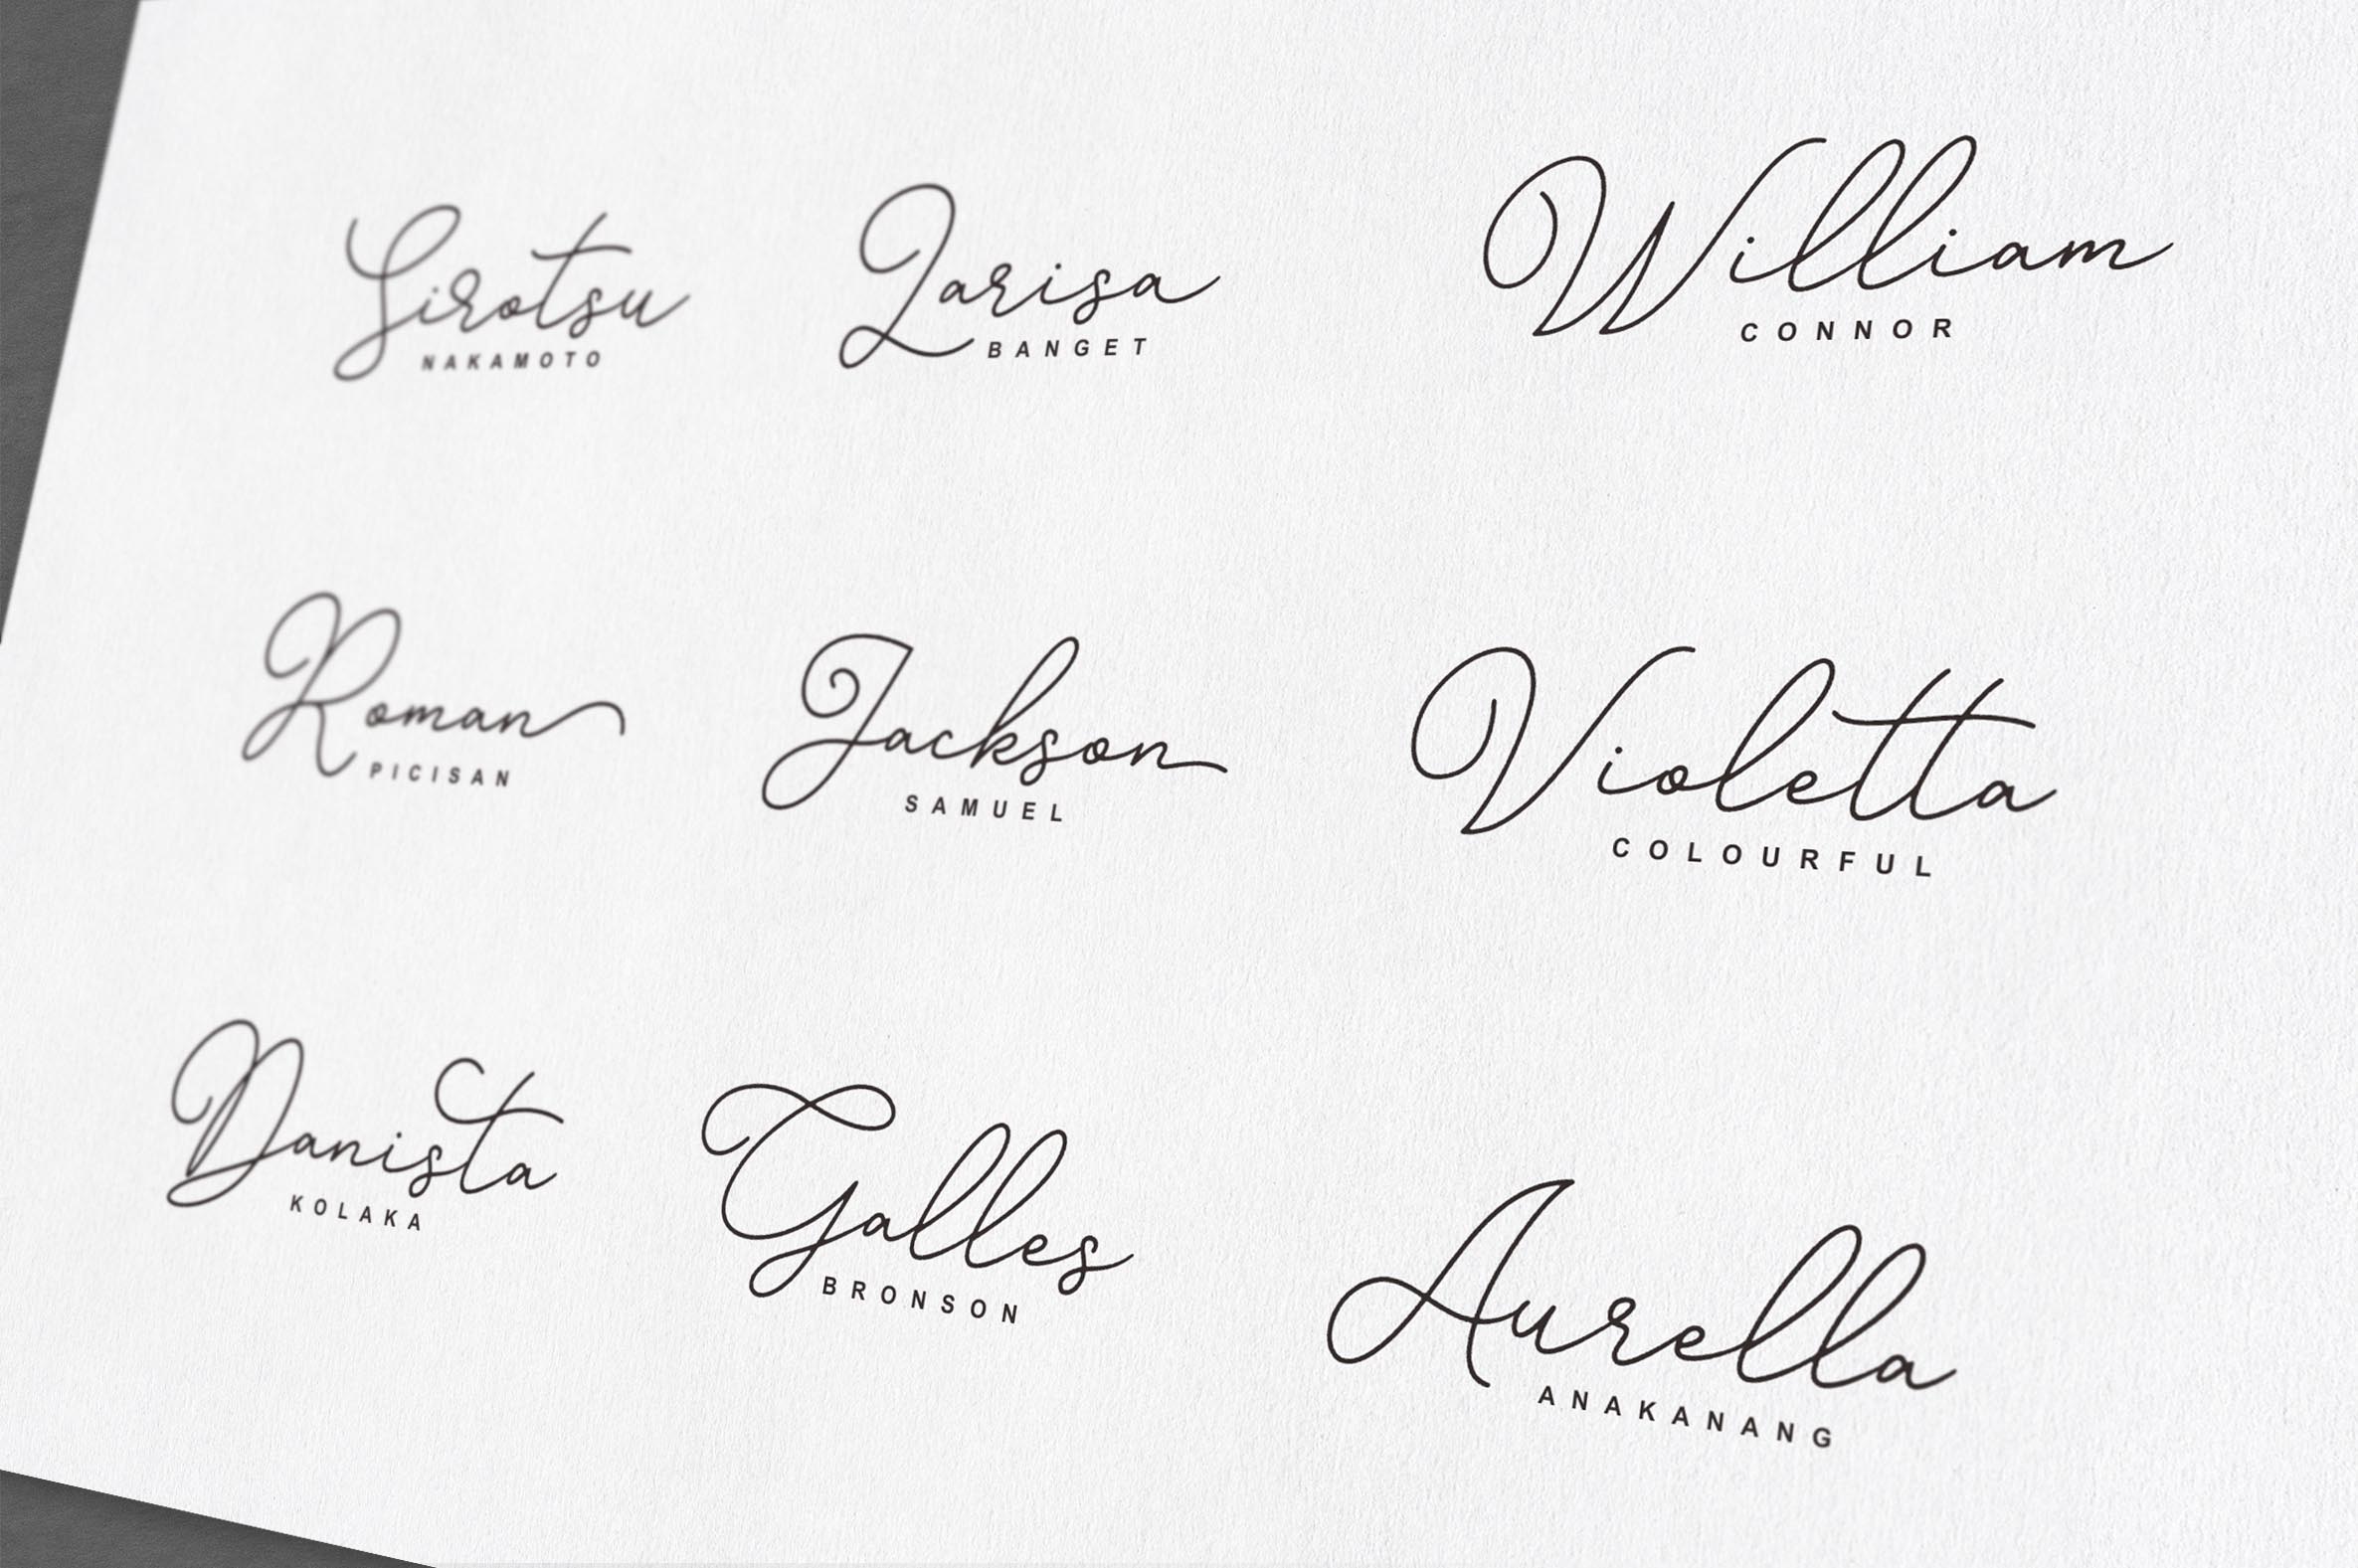 Sirotsu
NAKAMOTO
Larisa
BANGET
William
CONNOR
Roman
PICISAN
Jackson
SAMUEL
Violetta
COLOURFUL
Danista
KOLAKA
Galles
BRONSON
Aurella
ANAKANANG